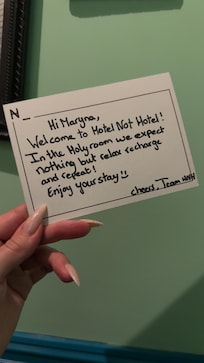 N_
Hi Maryna,
Welcome to Hotel Not Hotel!
In the Holy room we expect
nothing but relax recharge
and repeat!
Enjoy your stay!!
cheers, Team HNH